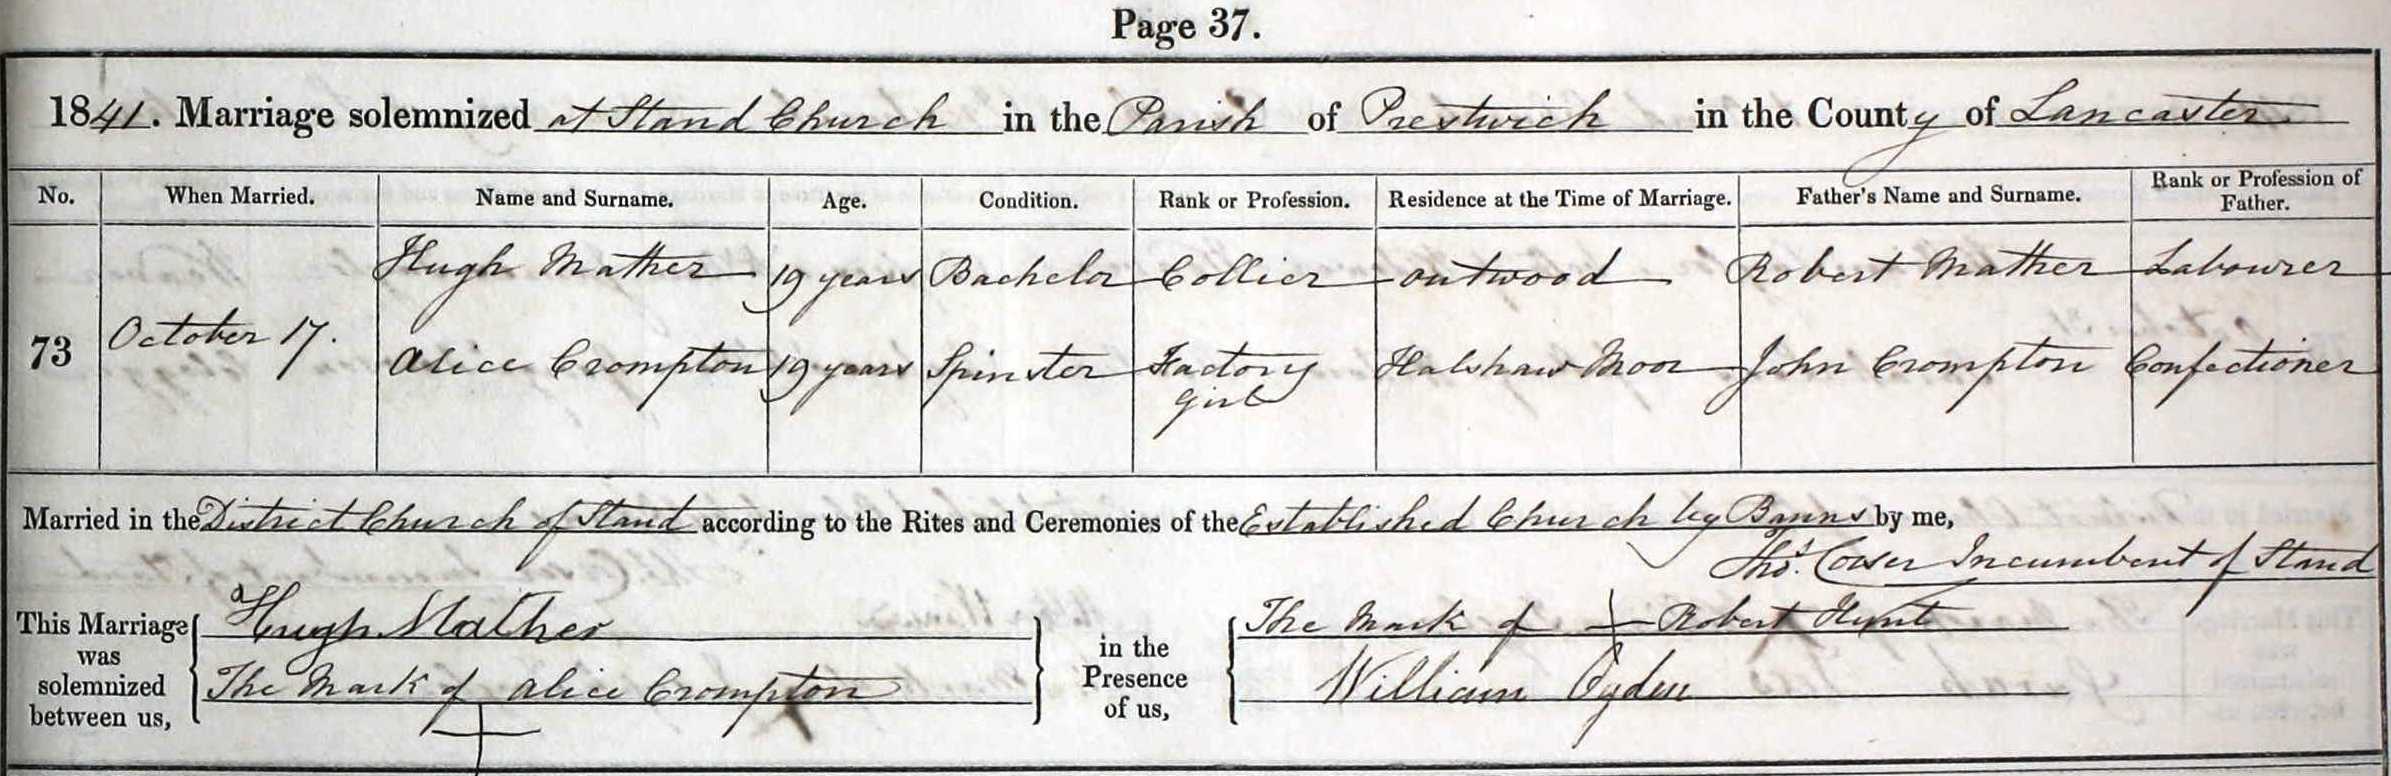 Page 37.
1841. Marriage solemnized at Stand Church in the Parish of Prestwich in the County of Lancaster
No. When Married. Name and Surname. Age. Condition. Rank or Profession. Residence at the Time of Marriage. Father's Name and Surname. Rank or Profession of Father.
Hugh Mather 19 years Bachelor Collier outwood Robert Mather Labourer
73 October 17.
Alice Crompton 19 years Spinster Factory girl Halshaw Moor John Crompton Confectioner
Married in the District Church of Stand according to the Rites and Ceremonies of the Established Church by Banns by me,
Thos. Corser Incumbent of Stand
This Marriage was solemnized between us,
Hugh Mather
The Mark of Alice Crompton
in the Presence of us,
The Mark of Robert Hunt
William Ogden